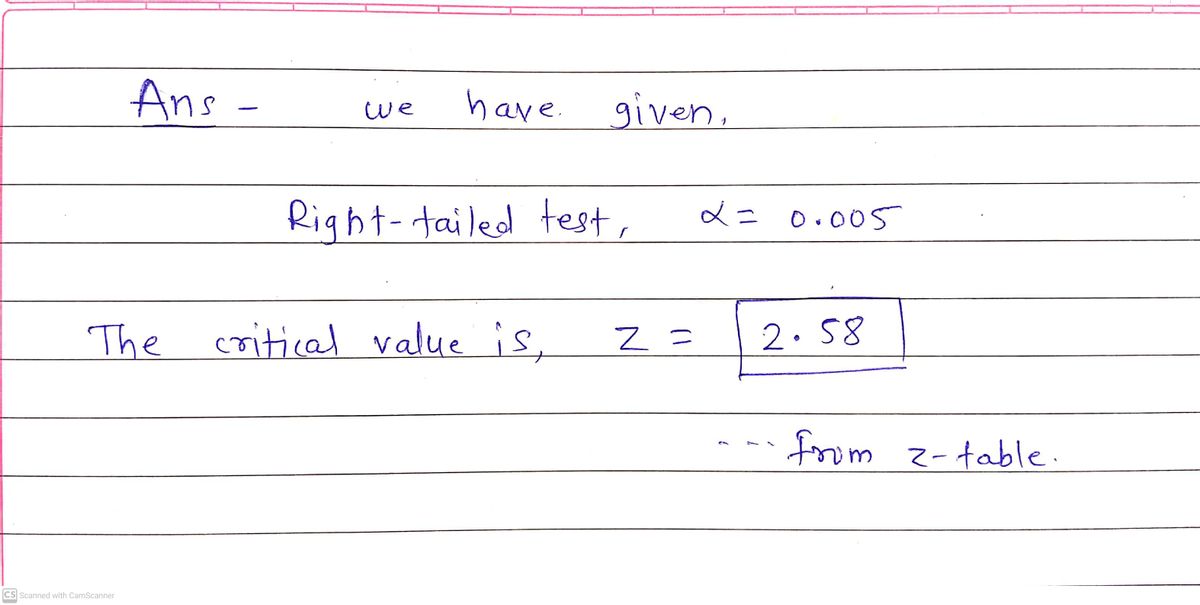 Ans - we have given,
Right-tailed test, α = 0.005
The critical value is, z = 2.58
--- from z-table.
CS Scanned with CamScanner